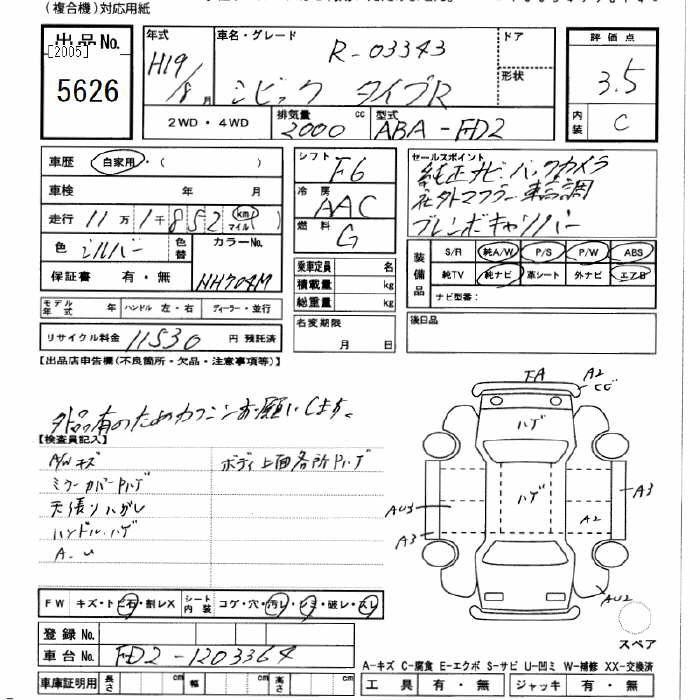 (複合機)対応用紙
出品No.
[2005]
5626
年式
H19/8月
車名・グレード
R-03343
シビック タイプR
ドア
形状
評価点
3.5
内装
C
2WD・4WD
排気量
2000 cc
型式
ABA-FD2
車歴
自家用・( )
車検 年 月
走行 11万1千852 km マイル ( )
色 シルバー
色替
カラーNo.
NH704M
保証書 有・無
モデル年式 年
ハンドル 左・右
ディーラー・並行
リサイクル料金 11530 円 預託済
シフト
F6
冷房
AAC
燃料
G
乗車定員 名
積載量 kg
総重量 kg
名変期限
月 日
セールスポイント
純正ナビ バックカメラ
社外マフラー 車高調
ブレンボキャリパー
装備品
S/R 純A/W P/S P/W ABS
純TV 純ナビ 革シート 外ナビ エアB
ナビ型番:
後日品
【出品店申告欄(不良箇所・欠品・注意事項等)】
外品有のためカクニンお願いします。
【検査員記入】
A/Wキズ
ミラーカバーPハゲ
天張りハガレ
ハンドルハゲ
A-U
ボディ上面各所Pハゲ
FA
A2
ハゲ
ハゲ
A3
A2
A3
AU2
FW キズ・トビ石・割レX
シート内装 コゲ・穴・汚レ・シミ・破レ・スレ
登録No.
車台No. FD2-1203364
車庫証明用 長さ cm 幅 cm 高さ cm
スペア
A-キズ C-腐食 E-エクボ S-サビ U-凹ミ W-補修 XX-交換済
工具 有・無 ジャッキ 有・無